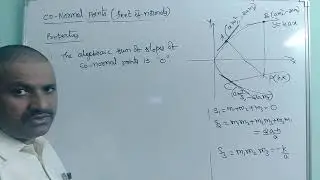 Co-Normal Points (feet of normals)
Properties
The algebraic sum of slopes of
co-normal points is "0"
y²=4ax
P(h,k)
S₁=m₁+m₂+m₃=0
S₂=m₁m₂+m₂m₃+m₃m₁
=2a-h/a
S₃=m₁m₂m₃=-k/a